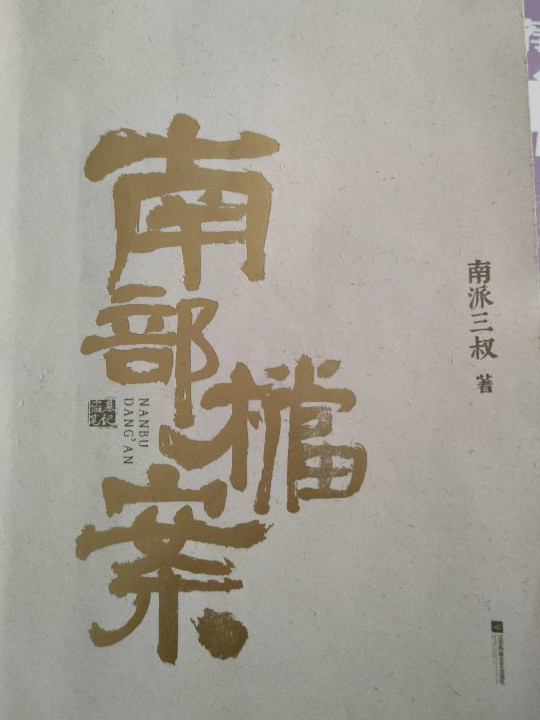 南部檔案
NANBU
DANG'AN
盗墓
笔记
南派三叔 著